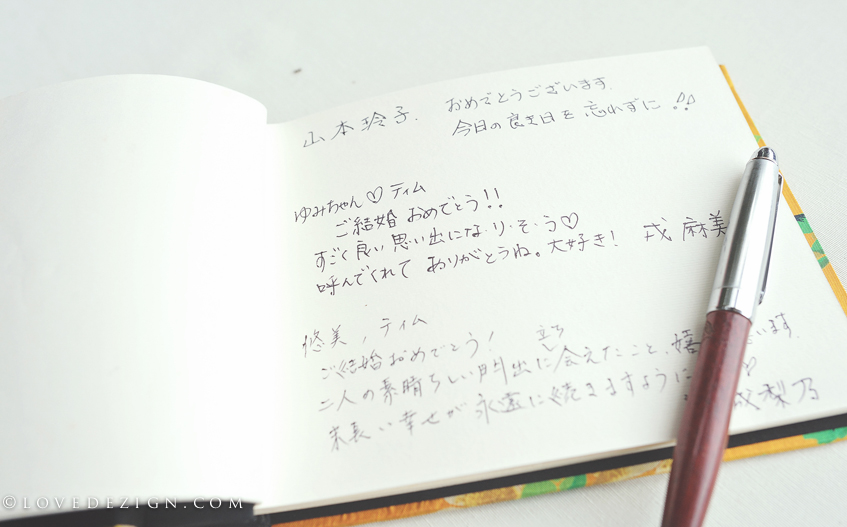 山本玲子. おめでとうございます.
今日の良き日を忘れずに!!
ゆみちゃん♡ティム
ご結婚おめでとう!!
すごく良い思い出にな・り・そ・う♡
呼んでくれて ありがとうね。大好き! 戎 麻美
悠美,ティム
ご結婚おめでとう!
二人の素晴らしい門出に立ち会えたこと、嬉 います.
末長い幸せが永遠に続きますように ♡
梨乃
©LOVEDEZIGN.COM